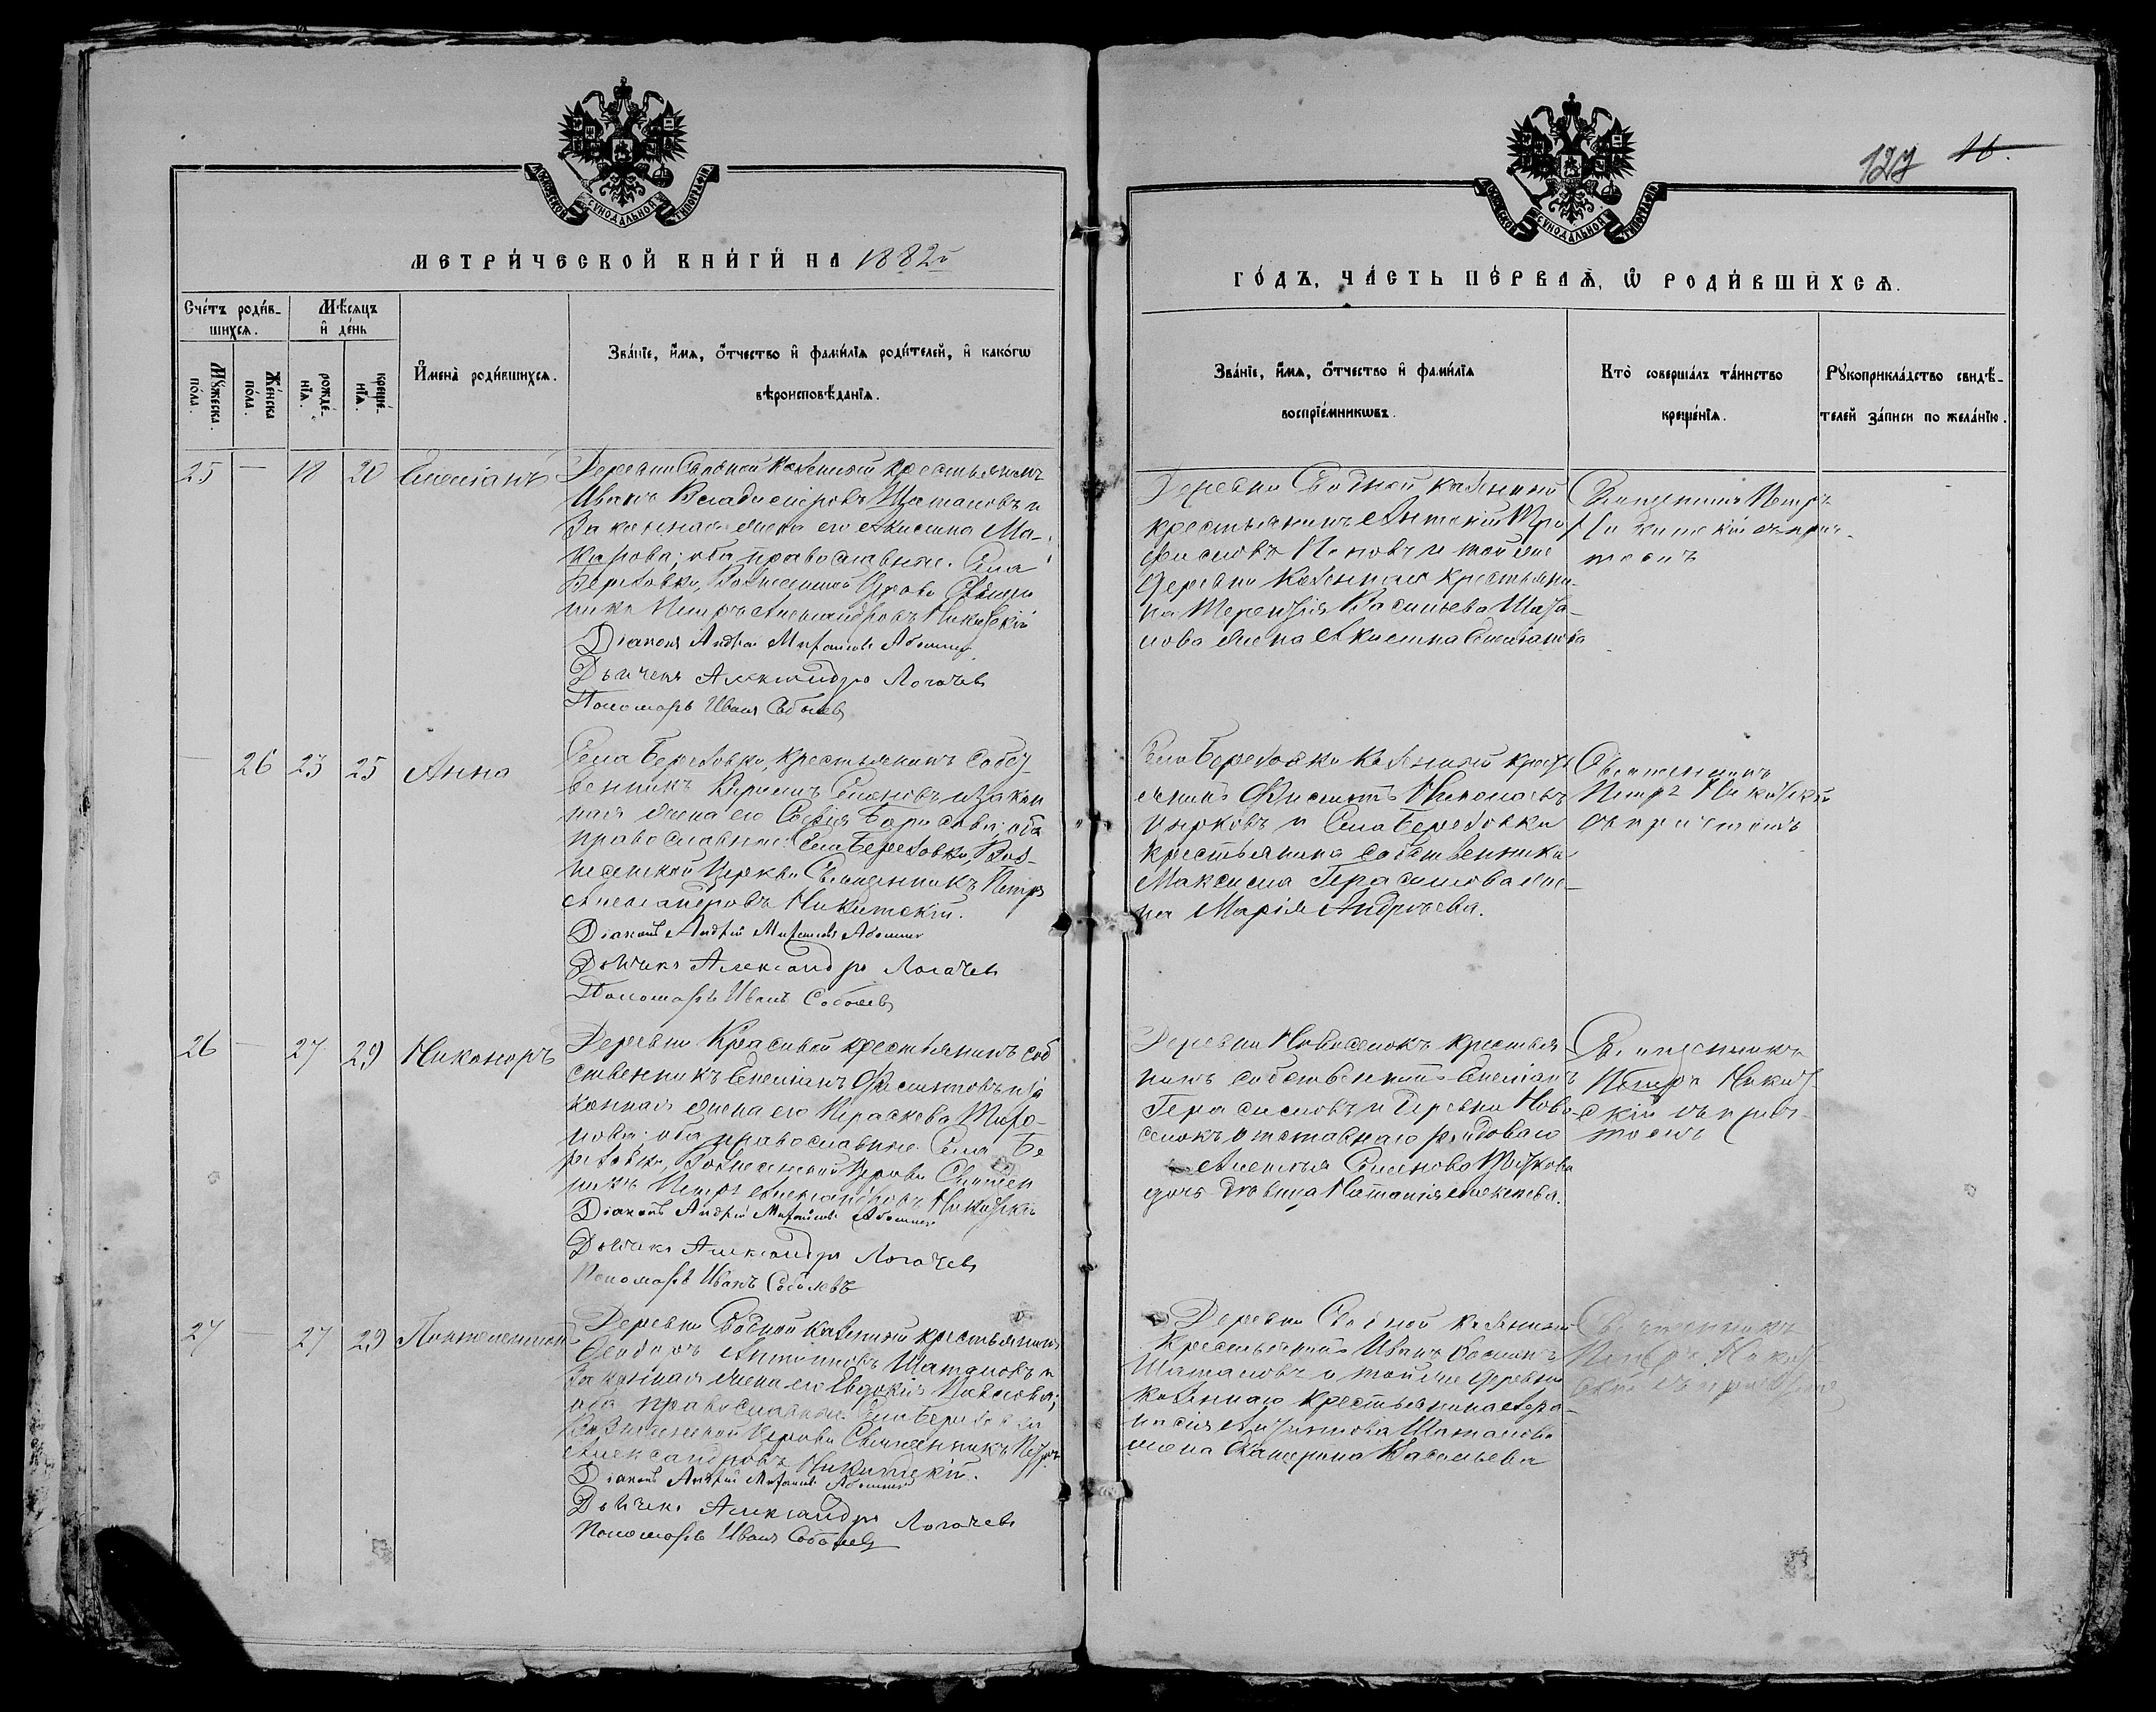 МОСКОВСКОЙ СѴНОДАЛЬНОЙ ТИПОГРАФІИ
МЕТРИ́ЧЕСКОЙ КНИ́ГИ НА 1882й
Сче́тъ роди́в-
шихся.
Мѣ́сяцъ
и҆ де́нь
Мꙋ́жеска по́ла.
Же́нска по́ла.
рожде́-
нїѧ.
креще́-
нїѧ.
И҆мена̀ роди́вшихсѧ.
Зва́нїе, и҆́мѧ, ѻ҆́тчество и҆ фамилїѧ роди́телей, и҆ како́гѡ
вѣроисповѣ́данїѧ.
25 — 18 20 Емеліанъ
Деревни Сводной казенный крестьянинъ
Иванъ Владиміровъ Шаталовъ и
законная жена его Акилина Ма-
карова; оба православные. Села
Березовки, Вознесенской Церкви Священ
никъ Петръ Александровъ Никитскій
Діаконъ Андрей Митрофановъ
Дьячекъ Александръ Логачевъ
Пономарь Иванъ Соболевъ
— 26 23 25 Анна
Села Березовки, крестьянинъ собст-
венникъ Кириллъ Семеновъ и закон
ная жена его Софія Борисова; оба
православные. Села Березовки, Воз-
несенской Церкви Священникъ Петръ
Александровъ Никитскій.
Діаконъ Андрей Митрофановъ
Дьячекъ Александръ Логачевъ
Пономарь Иванъ Соболевъ
26 — 27 29 Никаноръ
Деревни Красивой крестьянинъ соб
ственникъ Емеліанъ Филиповъ и за
конная жена его Параскева Миро-
нова; оба православные. Села Бе
резовки, Вознесенской Церкви Священ
никъ Петръ Александровъ Никитскій
Діаконъ Андрей Митрофановъ
Дьячекъ Александръ Логачевъ
Пономарь Иванъ Соболевъ
27 — 27 29 Пантелеимонъ
Деревни Сводной казенный крестьянинъ
Феодоръ Антиповъ Шаталовъ и
законная жена его Евдокія Павлова;
оба православные. Села Березовки
Вознесенской Церкви Священникъ Петръ
Александровъ Никитскій.
Діаконъ Андрей Митрофановъ
Дьячекъ Александръ Логачевъ
Пономарь Иванъ Соболевъ
127 16.
МОСКОВСКОЙ СѴНОДАЛЬНОЙ ТИПОГРАФІИ
ГО́ДЪ, ЧА́СТЬ ПЕ́РВАѦ, Ѡ҆ РОДИ́ВШИХСѦ.
Зва́нїе, и҆́мѧ, ѻ҆́тчество и҆ фами́лїѧ
воспрїе́мникѡвъ.
Кто̀ соверша́лъ та́инство
креще́нїѧ.
Рꙋкоприкла́дство свидѣ́-
телей за́писи по жела́нїю.
Деревни Сводной казенный
крестьянинъ Антоній Тро
фимовъ Поповъ и той же
деревни казеннаго крестьяни-
на Терентія Васильева Шата-
лова жена Акилина Емеліанова
Священникъ Петръ
Никитскій съ прич-
томъ
Села Березовки казенный кресть
янинъ Филиппъ Николаевъ
и Села Березовки
крестьянина собственника
Максима Герасимова же-
на Марія Андреева.
Священникъ
Петръ Никитскій
съ причтомъ
Деревни Новоселокъ крестья
нинъ собственникъ Емеліанъ
Герасимовъ и деревни Ново-
селокъ отставнаго рядоваго
Алексѣя Семенова
дочь дѣвица Наталія Алексѣева.
Священникъ
Петръ Никит-
скій съ прич-
томъ
Деревни Сводной казенный
крестьянинъ Иванъ
Шаталовъ и той же деревни
казеннаго крестьянина Афа-
насія Антипова Шаталова
жена Екатерина Васильева
Священникъ
Петръ Никит-
скій съ причтомъ